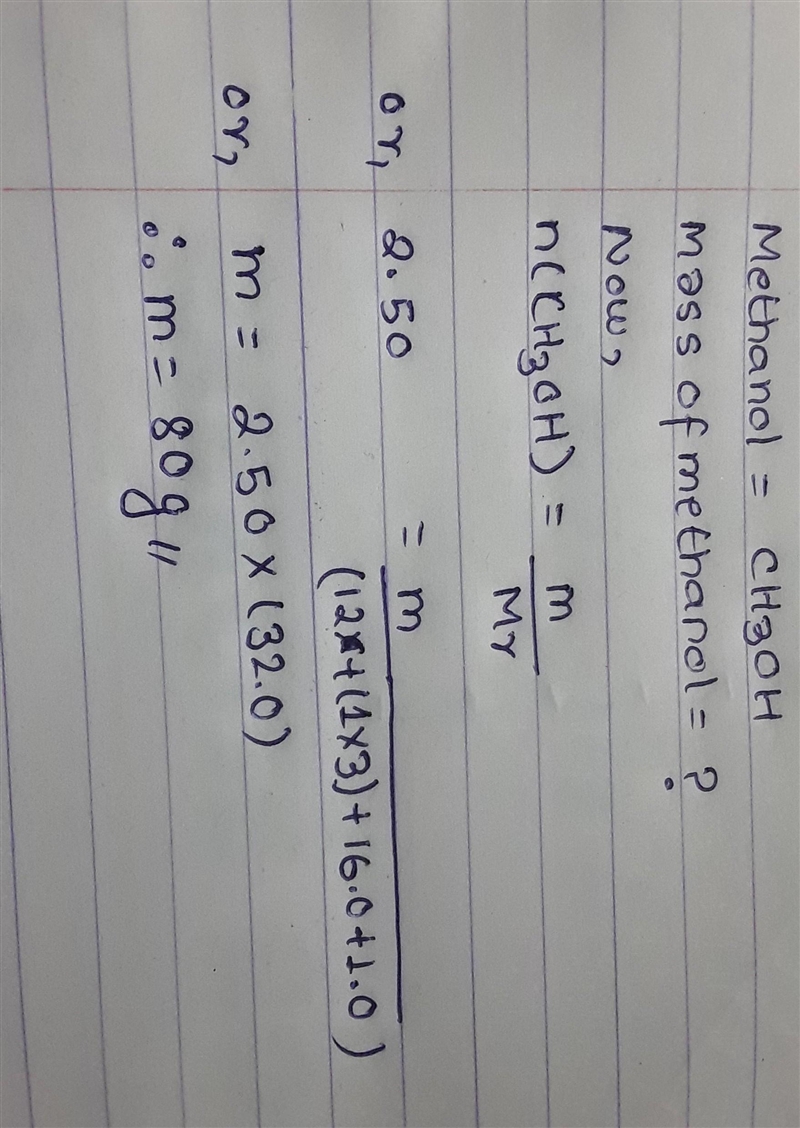 Methanol = CH3OH
Mass of methanol = ?
Now,
n(CH3OH) = m/Mr
or, 2.50 = m/(12+(1×3)+16.0+1.0)
or, m = 2.50×(32.0)
∴ m = 80g"